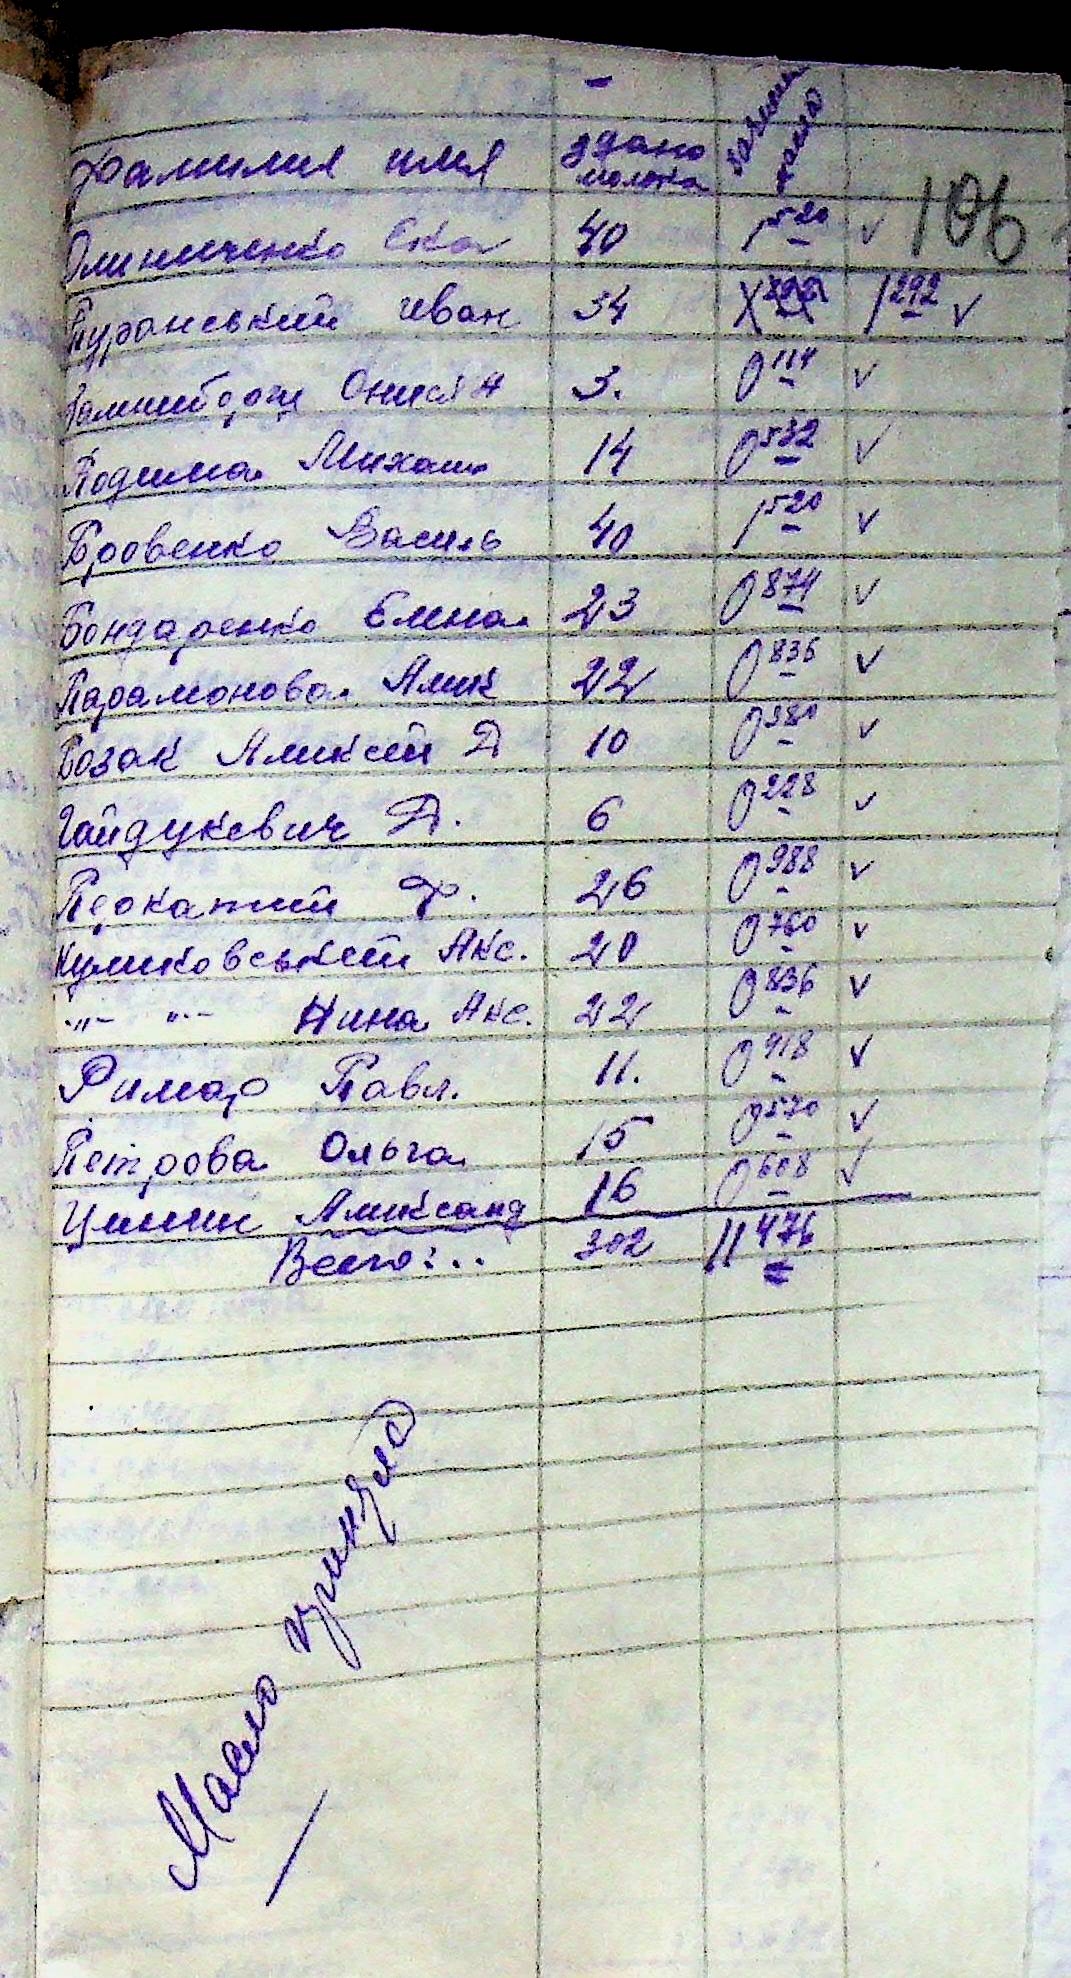 Фамилия имя здано молока масла
Олиниченко Ска 40 1 520 ✓ 106
Туранський иван 34 1 292 ✓
Онися 3. 0 114 ✓
Подима Михаил 14 0 532 ✓
Бровенко Василь 40 1 520 ✓
Бондаренко Елена 23 0 874 ✓
Парамонова Алик 22 0 836 ✓
Бозак Аликсей Д 10 0 380 ✓
Гайдукевич Д. 6 0 228 ✓
Перокатий Ф. 26 0 988 ✓
Куликовський Акс. 20 0 760 ✓
-"- -"- Нина Акс. 22 0 836 ✓
Римар Павл. 11. 0 418 ✓
Петрова Ольга 15 0 570 ✓
Аликсанд 16 0 608 ✓
Всего:.. 302 11 476
Масло приняла